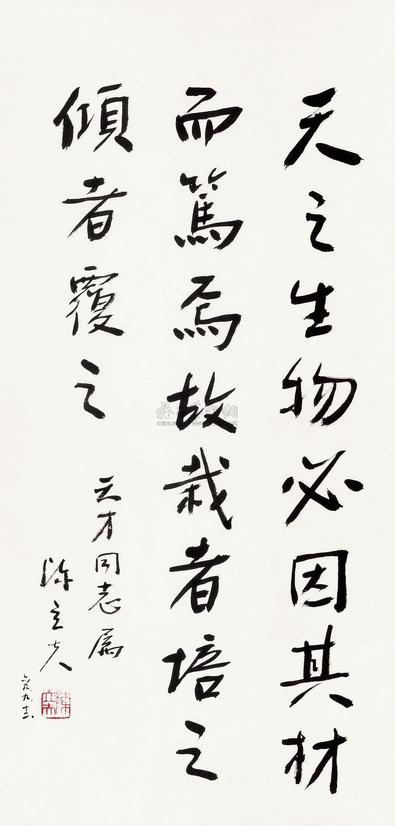 天之生物必因其材
而篤焉故栽者培之
傾者覆之
天才同志屬
陳立夫